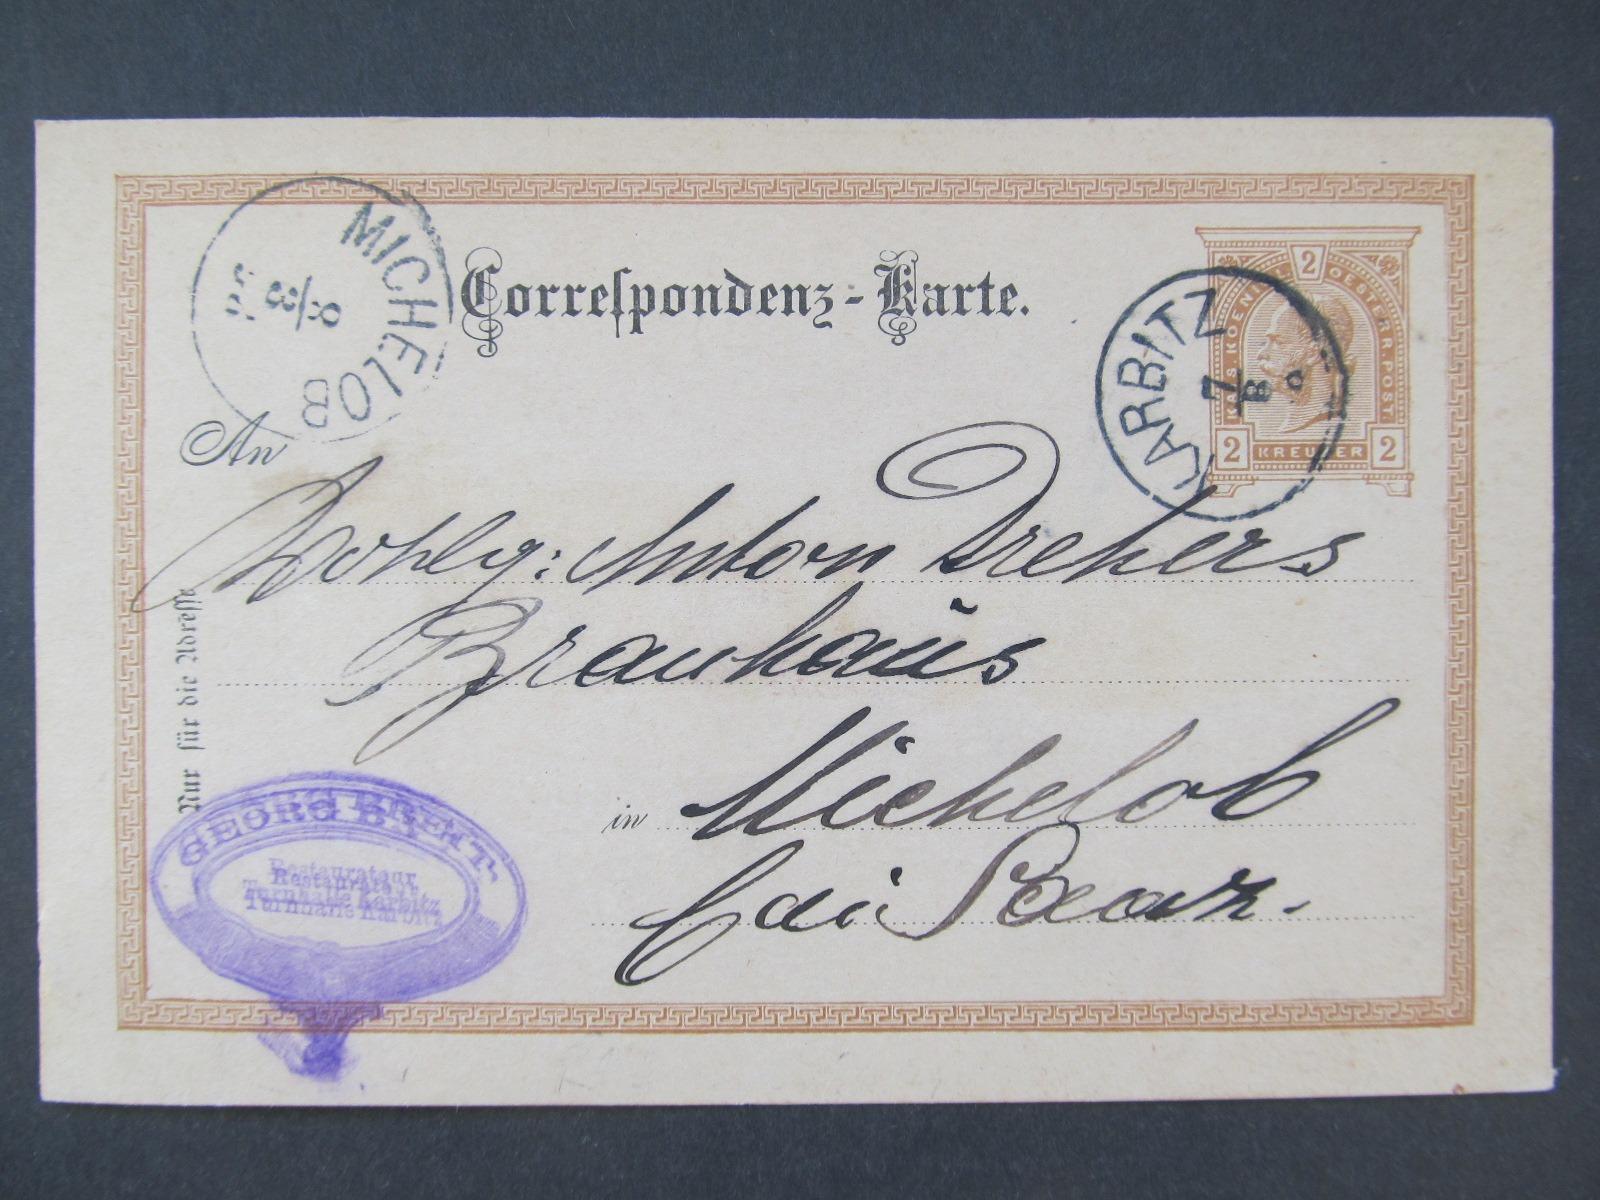 MICHELOB
8/3
Correspondenz-Karte.
2
KAIS. KOENIGL. OESTERR. POST.
2 KREUZER 2
KARBITZ
7
An
Wohlg: Anton Drehers
Brauhaus
in Michelob
bei Saaz.
Nur für die Adresse
GEORG BREHT.
Restaurateur
Turnhalle Karbitz